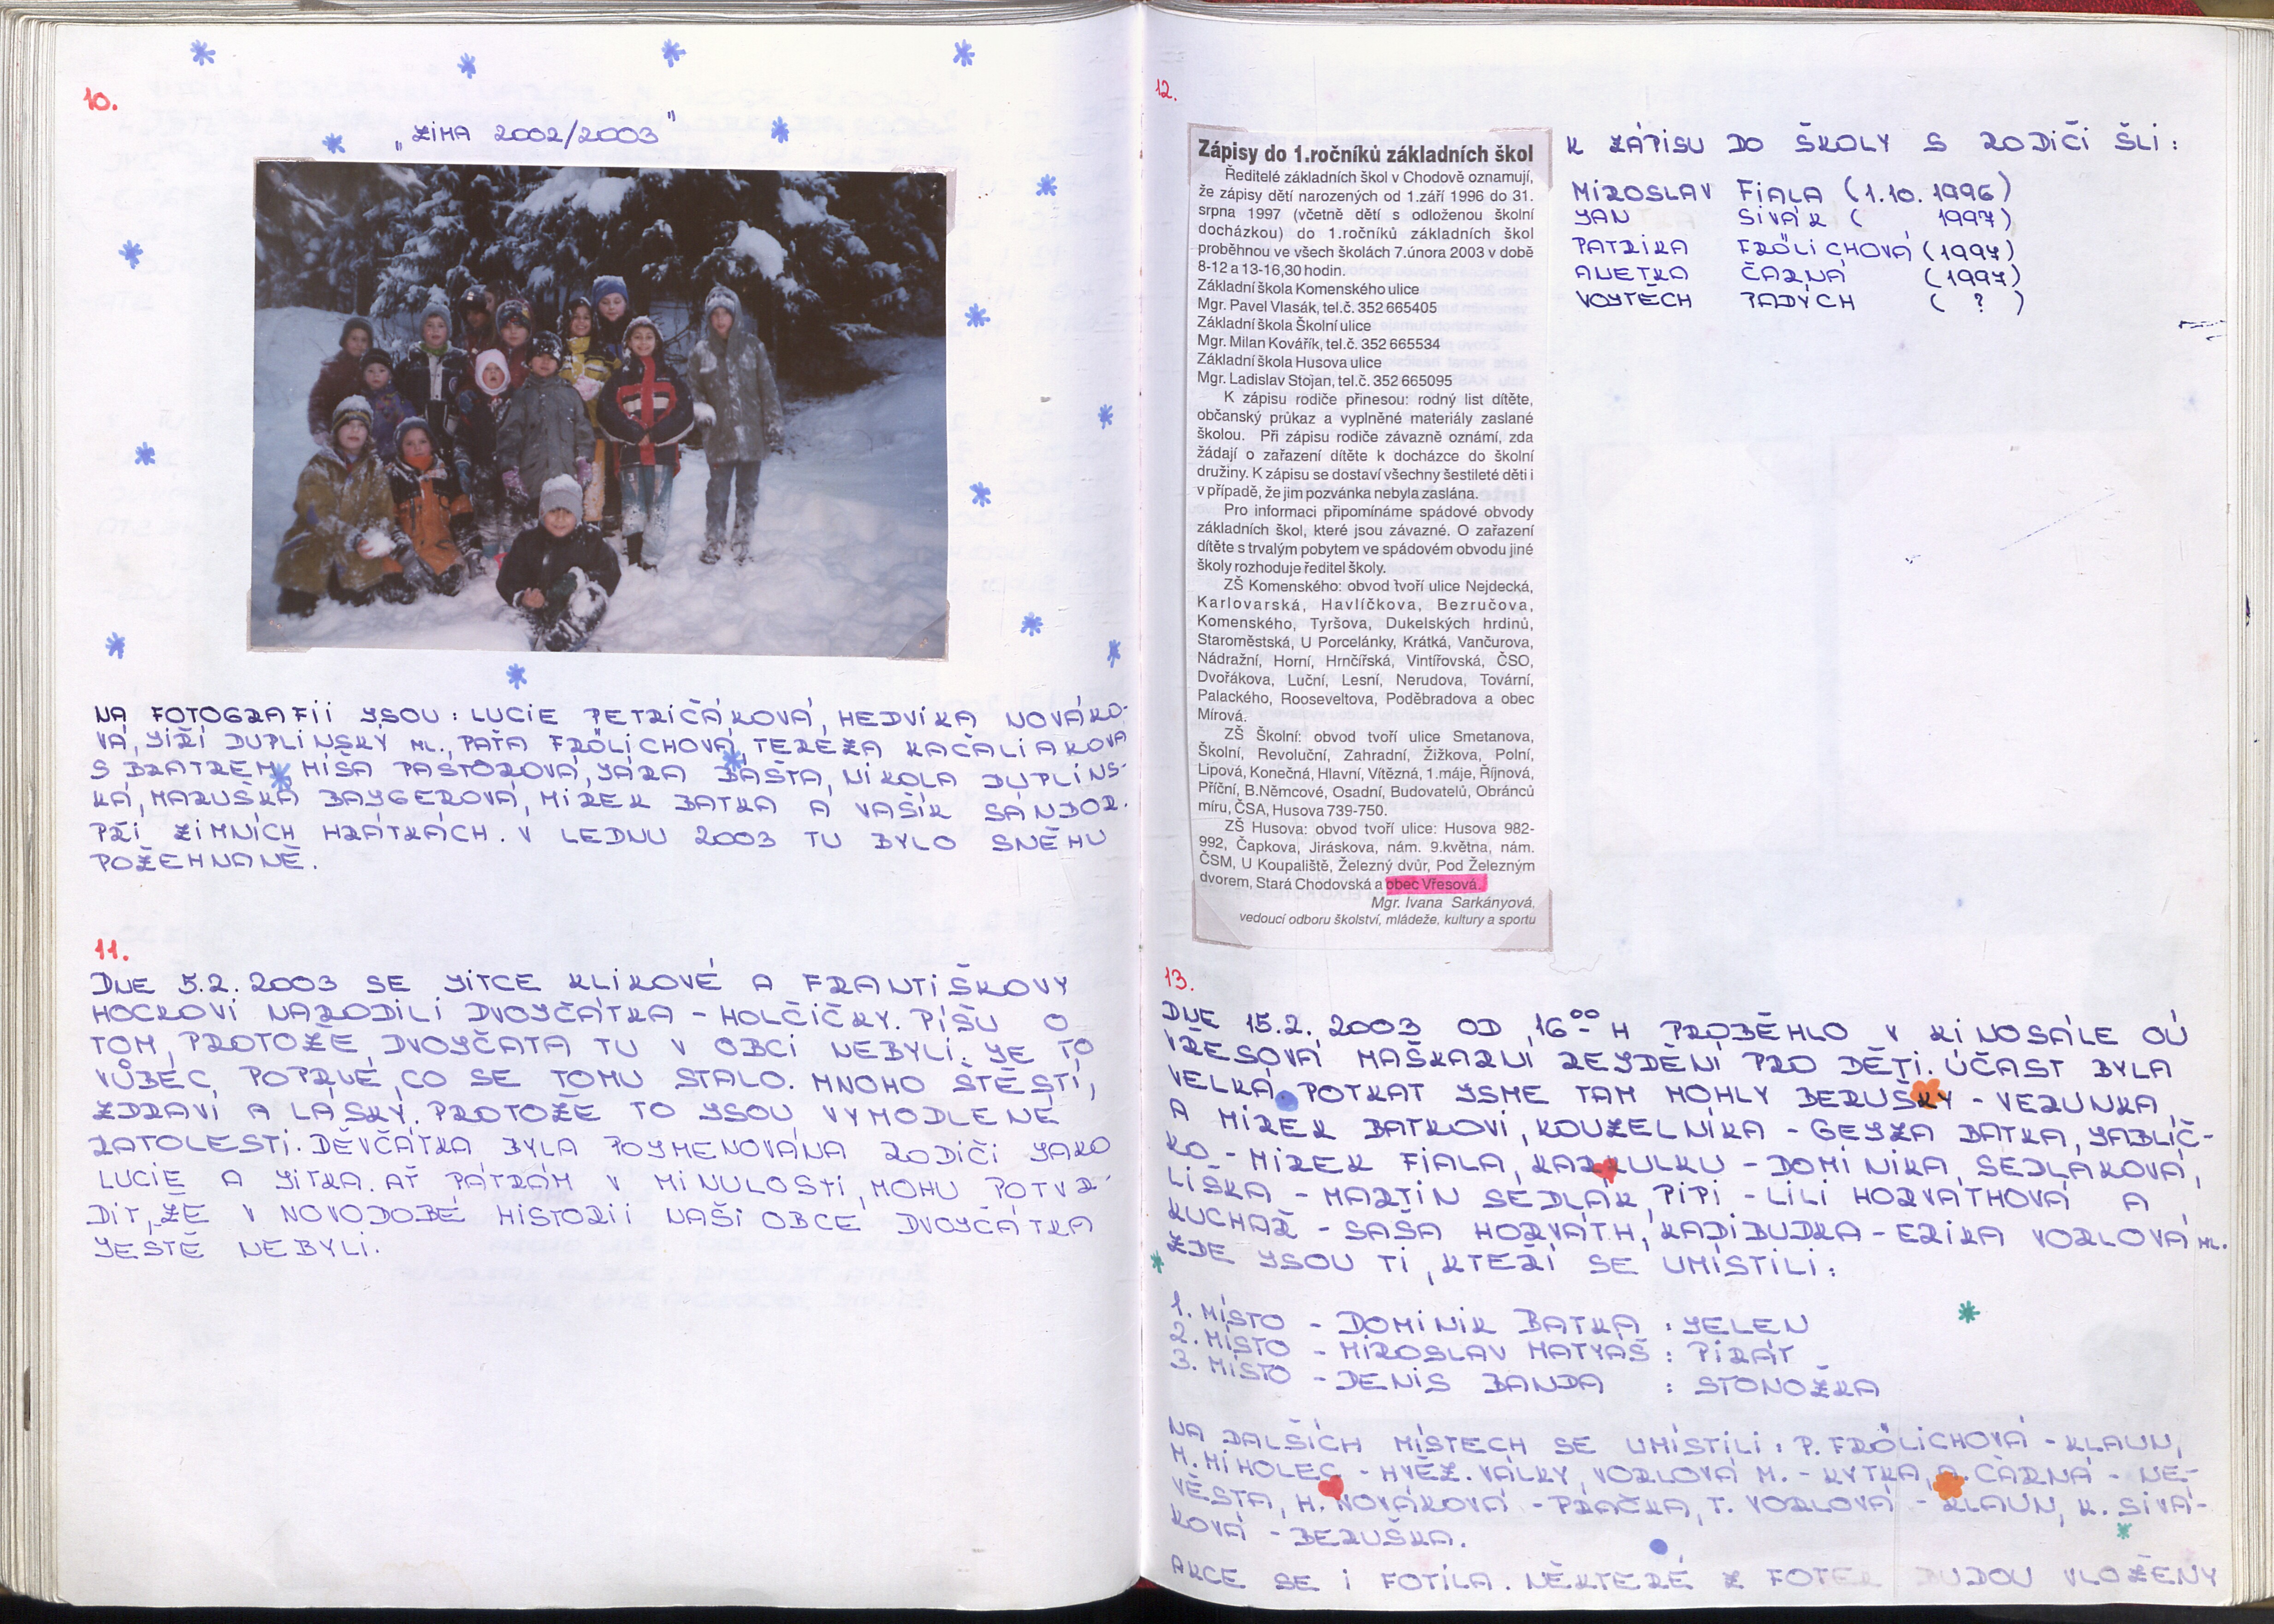 10.
„ZIMA 2002/2003"
NA FOTOGRAFII JSOU: LUCIE PETRIČÁKOVÁ, HEDVIKA NOVÁKO-
VÁ, JIŘÍ DUPLINSKÝ ML., PAŤA FRÖLICHOVÁ, TEREZA KAČALIAKOVA
S BRATREM, MÍŠA PASTOROVÁ, JÁRA BAŠTA, NIKOLA DUPLINS-
KÁ, MARUŠKA BAYGEROVÁ, MIREK BATKA A VAŠÍK SÁNDOR.
PŘI ZIMNÍCH HRÁTKÁCH. V LEDNU 2003 TU BYLO SNĚHU
POŽEHNANĚ.
11.
DNE 5.2. 2003 SE JITCE KLIKOVÉ A FRANTIŠKOVY
HOCKOVI NARODILI DVOJČÁTKA - HOLČIČKY. PÍŠU O
TOM, PROTOŽE, DVOJČATA TU V OBCI NEBYLI. JE TO
VŮBEC POPRVÉ, CO SE TOMU STALO. MNOHO ŠTĚSTÍ,
ZDRAVÍ A LÁSKY. PROTOŽE TO JSOU VYMODLENÉ
RATOLESTI. DĚVČÁTKA BYLA POJMENOVÁNA RODIČI JAKO
LUCIE A JITKA. AŤ PÁTRÁM V MINULOSTI, MOHU POTVR-
DIT, ŽE V NOVODOBÉ HISTORII NAŠI OBCE DVOJČÁTKA
JEŠTĚ NEBYLI.
12.
Zápisy do 1.ročníků základních škol
Ředitelé základních škol v Chodově oznamují,
že zápisy dětí narozených od 1.září 1996 do 31.
srpna 1997 (včetně dětí s odloženou školní
docházkou) do 1.ročníků základních škol
proběhnou ve všech školách 7.února 2003 v době
8-12 a 13-16,30 hodin.
Základní škola Komenského ulice
Mgr. Pavel Vlasák, tel.č. 352 665405
Základní škola Školní ulice
Mgr. Milan Kovářík, tel.č. 352 665534
Základní škola Husova ulice
Mgr. Ladislav Stojan, tel.č. 352 665095
K zápisu rodiče přinesou: rodný list dítěte,
občanský průkaz a vyplněné materiály zaslané
školou. Při zápisu rodiče závazně oznámí, zda
žádají o zařazení dítěte k docházce do školní
družiny. K zápisu se dostaví všechny šestileté děti i
v případě, že jim pozvánka nebyla zaslána.
Pro informaci připomínáme spádové obvody
základních škol, které jsou závazné. O zařazení
dítěte s trvalým pobytem ve spádovém obvodu jiné
školy rozhoduje ředitel školy.
ZŠ Komenského: obvod tvoří ulice Nejdecká,
Karlovarská, Havlíčkova, Bezručova,
Komenského, Tyršova, Dukelských hrdinů,
Staroměstská, U Porcelánky, Krátká, Vančurova,
Nádražní, Horní, Hrnčířská, Vintířovská, ČSO,
Dvořákova, Luční, Lesní, Nerudova, Tovární,
Palackého, Rooseveltova, Poděbradova a obec
Mírová.
ZŠ Školní: obvod tvoří ulice Smetanova,
Školní, Revoluční, Zahradní, Žižkova, Polní,
Lipová, Konečná, Hlavní, Vítězná, 1.máje, Říjnová,
Příční, B.Němcové, Osadní, Budovatelů, Obránců
míru, ČSA, Husova 739-750.
ZŠ Husova: obvod tvoří ulice: Husova 982-
992, Čapkova, Jiráskova, nám. 9.května, nám.
ČSM, U Koupaliště, Železný dvůr, Pod Železným
dvorem, Stará Chodovská a obec Vřesová.
Mgr. Ivana Sarkányová,
vedoucí odboru školství, mládeže, kultury a sportu
K ZÁPISU DO ŠKOLY S RODIČI ŠLI:
MIROSLAV FIALA (1.10.1996)
JAN SIVÁK ( 1997)
PATRIKA FRÖLICHOVÁ (1997)
ANETKA ČARNÁ (1997)
VOJTĚCH PADÝCH ( ? )
13.
DNE 15.2. 2003 OD 16⁰⁰ H PROBĚHLO V KINOSÁLE OÚ
VŘESOVÁ MAŠKARNÍ REJDĚNÍ PRO DĚTI. ÚČAST BYLA
VELKÁ. POTKAT JSME TAM MOHLY BERUŠKY - VERUNKA
A MIREK BATKOVI, KOUZELNÍKA - GEJZA BATKA, JABLÍČ-
KO - MIREK FIALA, KARKULKU - DOMINIKA SEDLÁKOVÁ,
LIŠKA - MARTIN SEDLÁK, PIPI - LILI HORVÁTHOVÁ A
KUCHAŘ - SAŠA HORVÁTH, KADIBUDKA - ERIKA VORLOVÁ ML.
ZDE JSOU TI, KTEŘÍ SE UMÍSTILI:
1. MÍSTO - DOMINIK BATKA : JELEN
2. MÍSTO - MIROSLAV MATYÁŠ : PIRÁT
3. MÍSTO - DENIS BANDA : STONOŽKA
NA DALŠÍCH MÍSTECH SE UMÍSTILI: P. FRÖLICHOVÁ - KLAUN,
M. MIHOLEC - HVĚZ. VÁLKY, VORLOVÁ M. - KYTKA, A. ČARNÁ - NE-
VĚSTA, H. NOVÁKOVÁ - PRAČKA, T. VORLOVÁ - KLAUN, K. SIVÁ-
KOVÁ - BERUŠKA.
AKCE SE I FOTILA. NĚKTERÉ Z FOTEK BUDOU VLOŽENY